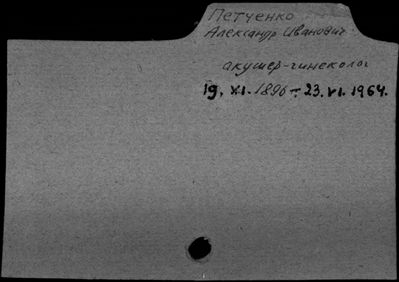 Петченко
Александр Иванович
акушер-гинеколог
19. XI. 1896 – 23. VI. 1964.